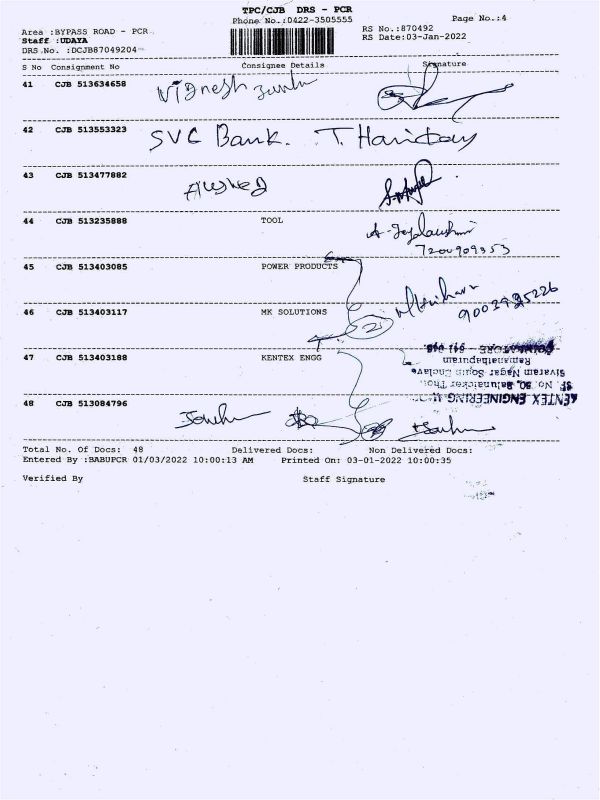 TPC/CJB DRS - PCR
Phone No.:0422-3505555 Page No.:4
Area :BYPASS ROAD - PCR RS No.:870492
Staff :UDAYA RS Date:03-Jan-2022
DRS No. :DCJB87049204
S No Consignment No Consignee Details Signature
41 CJB 513634658 Vignesh
42 CJB 513553323 SVC Bank. T. Haridas
43 CJB 513477882
44 CJB 513235888 TOOL
45 CJB 513403085 POWER PRODUCTS
46 CJB 513403117 MK SOLUTIONS
47 CJB 513403188 KENTEX ENGG
KENTEX ENGINEERING
Sivaram Nagar Enclave
Ramanathapuram
COIMBATORE
48 CJB 513084796
Total No. Of Docs: 48 Delivered Docs: Non Delivered Docs:
Entered By :BABUPCR 01/03/2022 10:00:13 AM Printed On: 03-01-2022 10:00:35
Verified By Staff Signature